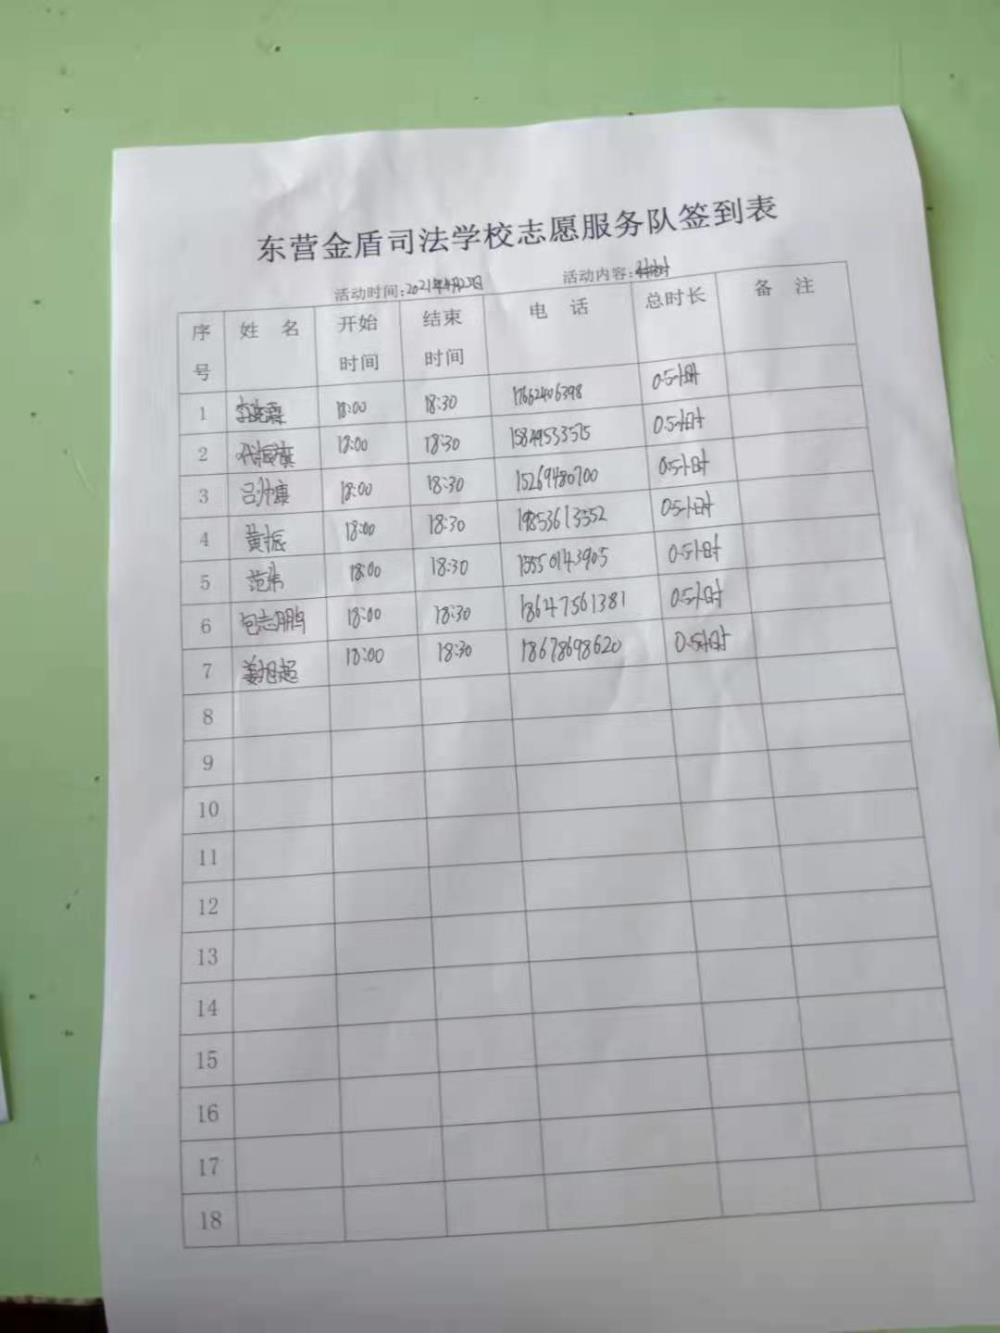 东营金盾司法学校志愿服务队签到表
活动时间:2021年4月23日 活动内容:
序号 姓 名 开始时间 结束时间 电 话 总时长 备 注
1 18:00 18:30 17662406398 0.5小时
2 代振旗 18:00 18:30 0.5小时
3 吕帅康 18:00 18:30 15269480700 0.5小时
4 黄振 18:00 18:30 19853613552 0.5小时
5 范伟 18:00 18:30 15550143905 0.5小时
6 包志鹏 18:00 18:30 18647561381 0.5小时
7 姜旭超 18:00 18:30 18678698620 0.5小时
8
9
10
11
12
13
14
15
16
17
18